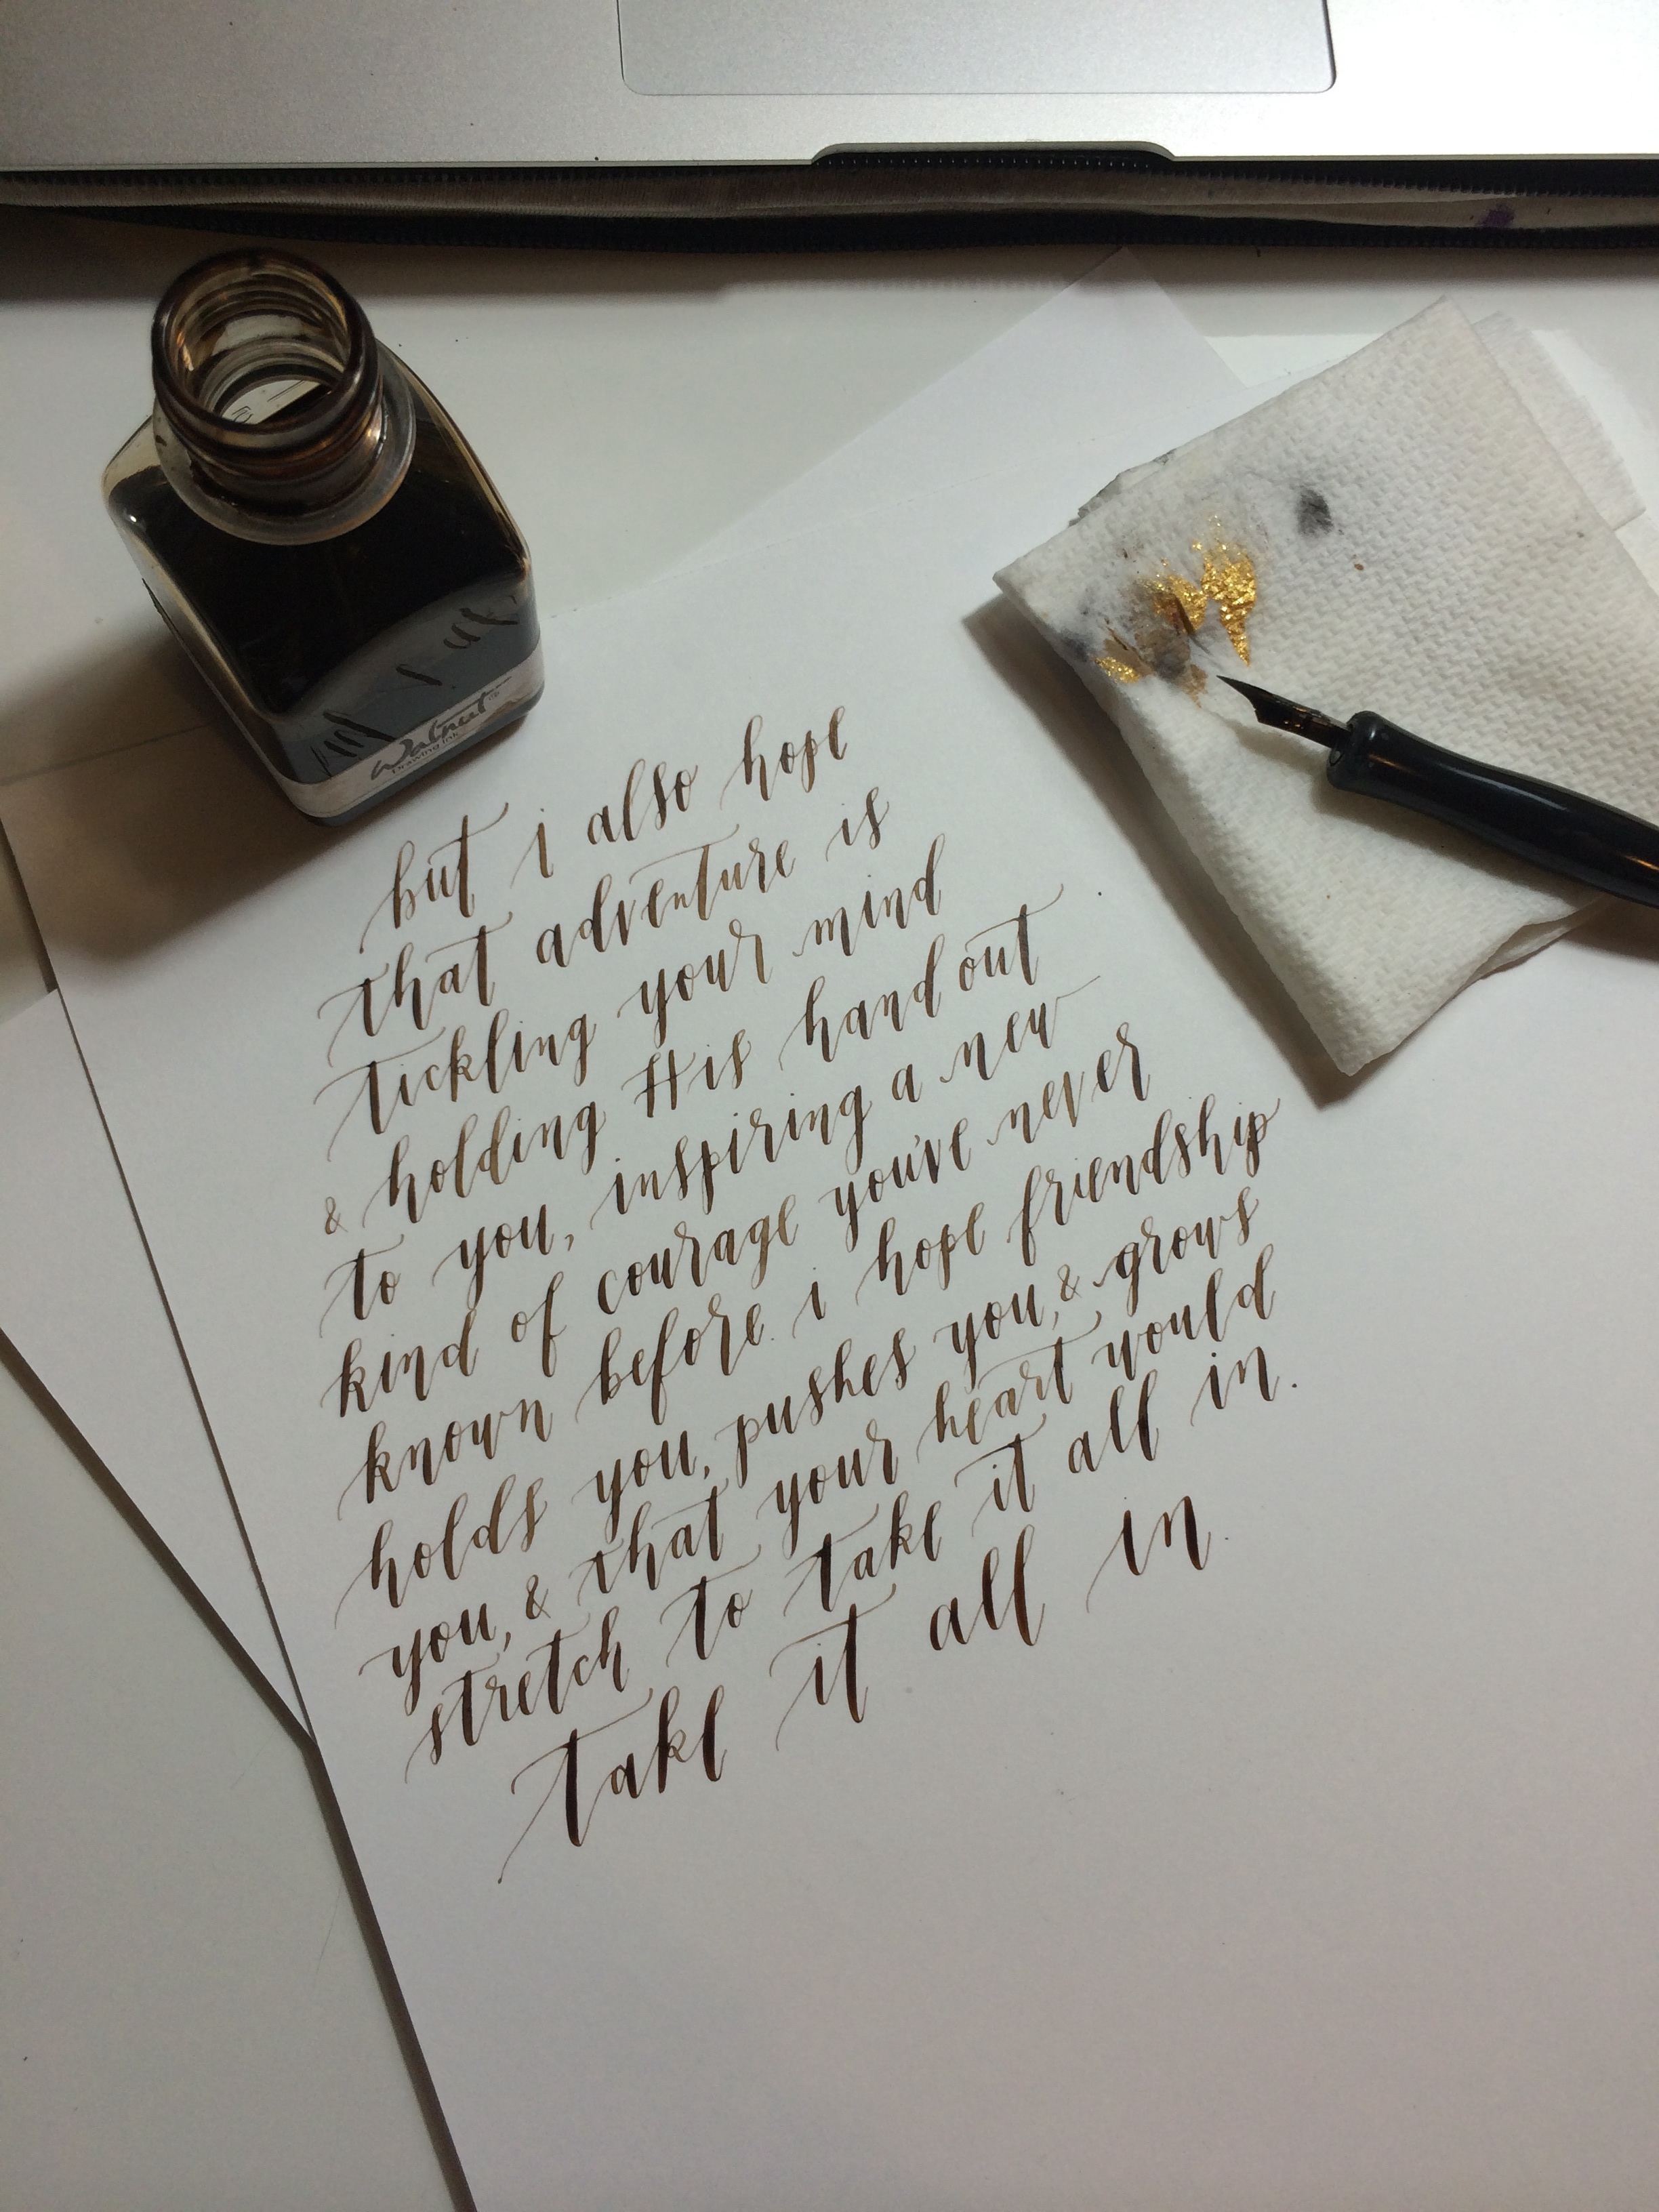 Walnut
Drawing Ink
but i also hope
that adventure is
tickling your mind
& holding His hand out
to you, inspiring a new
kind of courage you've never
known before. i hope friendship
holds you, pushes you, & grows
you, & that your heart would
stretch to take it all in.
take it all in.